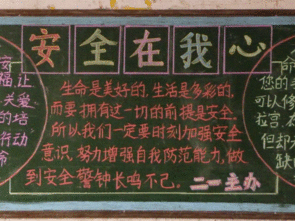 安全在我心
生命是美好的,生活是多彩的,
而要拥有这一切的前提是安全.
所以我们一定要时刻加强安全
意识,努力增强自我防范能力,做
到安全警钟长鸣不己。
二一主办
福让
关爱
的墙
行动
命
您的
可以修
拉宫,
但却
缺